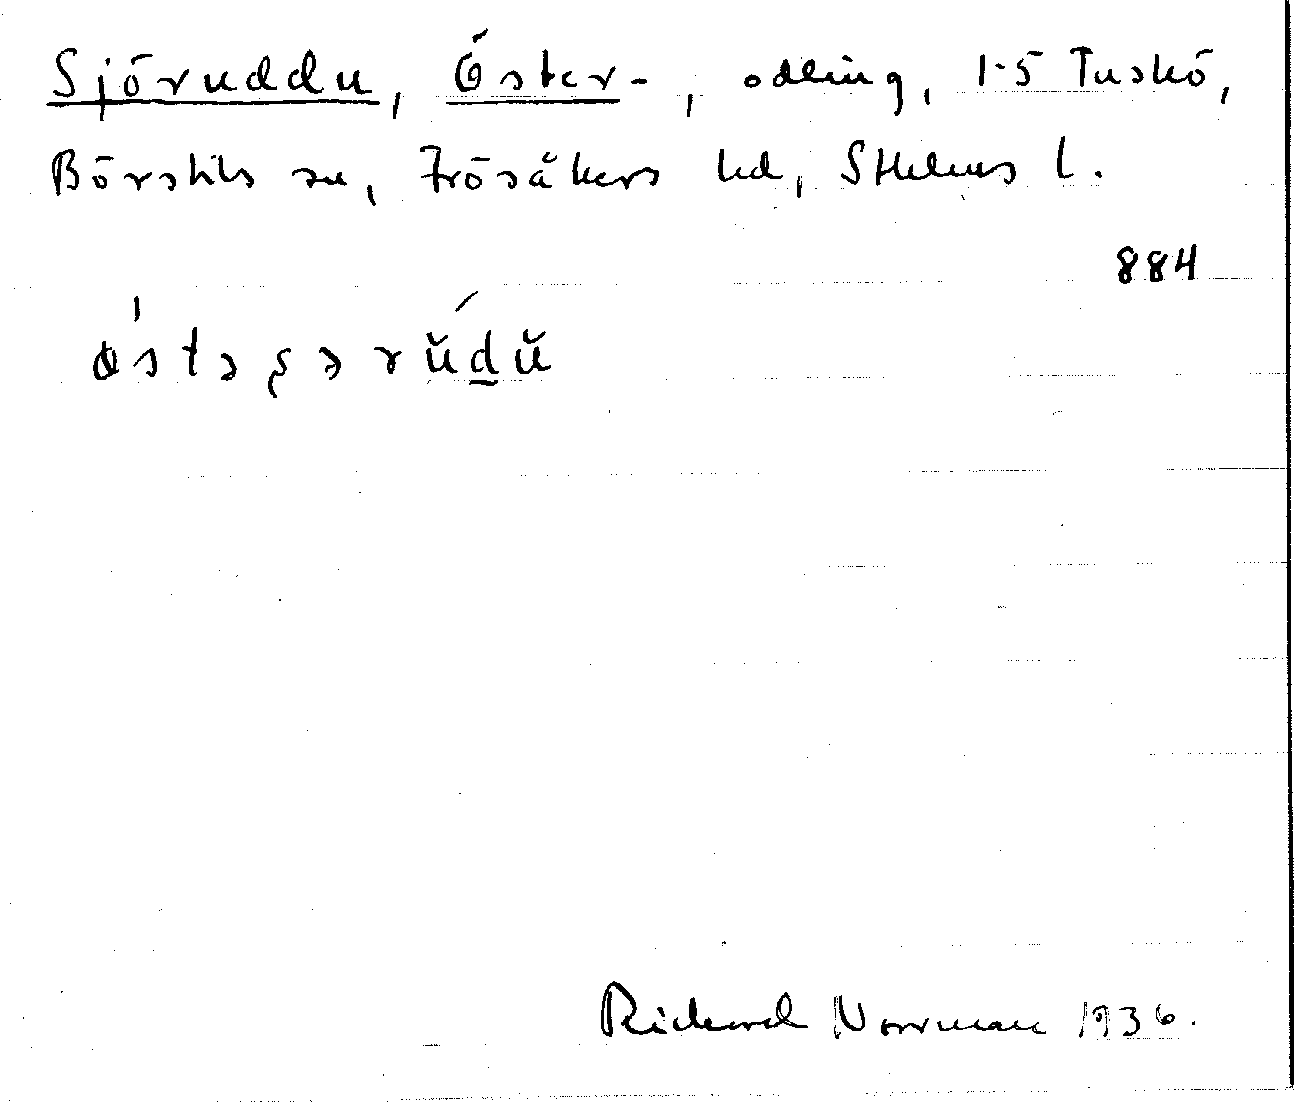 Sjöruddu, Öster-, odling, 1-5 Tuskö,
Börstils sn, Frösåkers hd, Sthlms l.
884
Richard Norrman 1936.